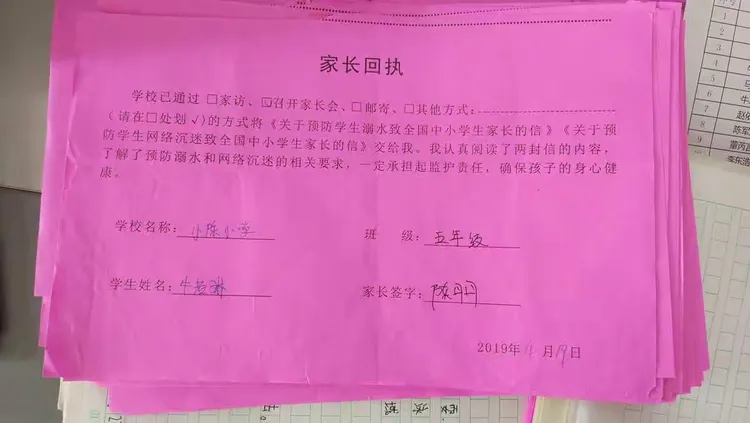 家长回执
学校已通过 □家访、☑召开家长会、□邮寄、□其他方式：
(请在□处划 √)的方式将《关于预防学生溺水致全国中小学生家长的信》《关于预
防学生网络沉迷致全国中小学生家长的信》交给我。我认真阅读了两封信的内容，
了解了预防溺水和网络沉迷的相关要求，一定承担起监护责任，确保孩子的身心健
康。
学校名称：小陈小学 班 级：五年级
学生姓名： 家长签字：陈丹丹
2019年 月19日